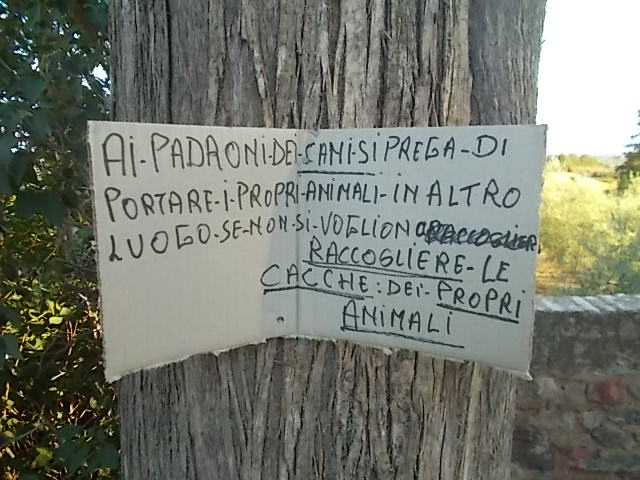 AI-PADRONI-DEI-CANI-SI PREGA-DI
PORTARE-I-PROPRI-ANIMALI-IN ALTRO
LUOGO-SE-NON-SI-VOGLIONO RACCOGLIER
RACCOGLIERE-LE
CACCHE: DEI-PROPRI
ANIMALI